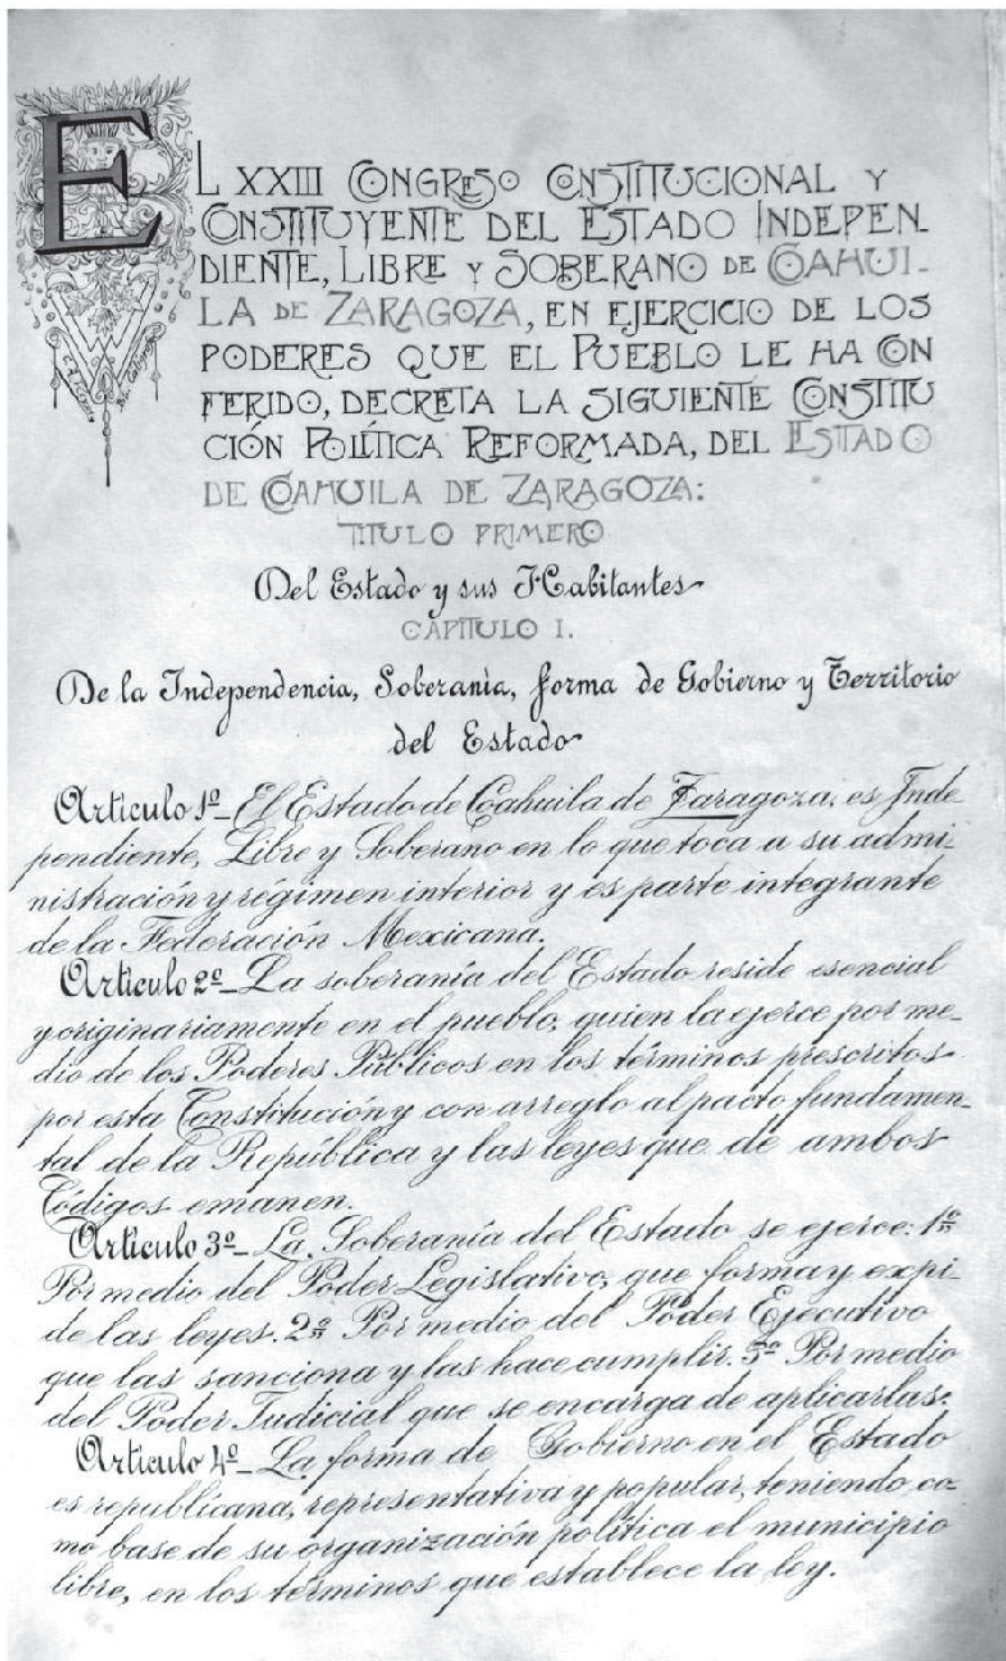 EL XXIII CONGRESO CONSTITUCIONAL Y
CONSTITUYENTE DEL ESTADO INDEPEN-
DIENTE, LIBRE Y SOBERANO DE COAHUI-
LA DE ZARAGOZA, EN EJERCICIO DE LOS
PODERES QUE EL PUEBLO LE HA CON
FERIDO, DECRETA LA SIGUIENTE CONSTITU
CIÓN POLÍTICA REFORMADA, DEL ESTADO
DE COAHUILA DE ZARAGOZA:
TITULO PRIMERO
Del Estado y sus Habitantes
CAPITULO I.
De la Independencia, Soberanía, forma de Gobierno y Territorio
del Estado
Artículo 1º_ El Estado de Coahuila de Zaragoza, es Inde-
pendiente, Libre y Soberano en lo que toca a su admi-
nistración y régimen interior y es parte integrante
de la Federación Mexicana.
Artículo 2º_ La soberanía del Estado reside esencial
y originariamente en el pueblo, quien la ejerce por me-
dio de los Poderes Públicos en los términos prescritos
por esta Constitución y con arreglo al pacto fundamen-
tal de la República y las leyes que de ambos
Códigos emanen.
Artículo 3º_ La Soberanía del Estado se ejerce: 1º
Por medio del Poder Legislativo, que forma y expi-
de las leyes. 2º Por medio del Poder Ejecutivo
que las sanciona y las hace cumplir. 3º Por medio
del Poder Judicial que se encarga de aplicarlas.
Artículo 4º_ La forma de Gobierno en el Estado
es republicana, representativa y popular, teniendo co-
mo base de su organización política el municipio
libre, en los términos que establece la ley.